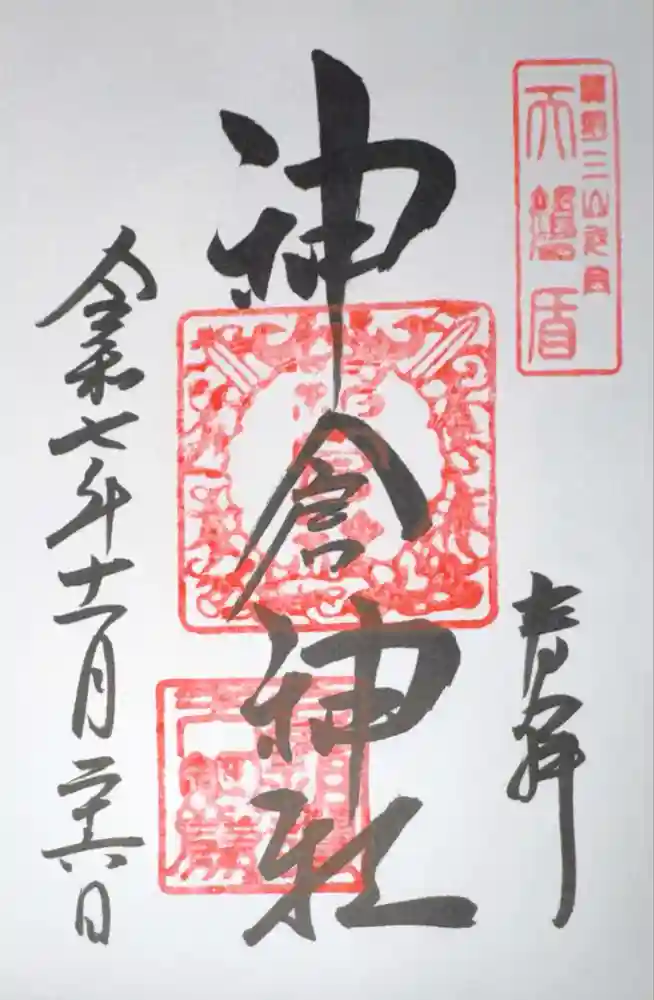 熊野三山元宮
天磐盾
奉拝
神倉神社
令和七年十一月二十六日